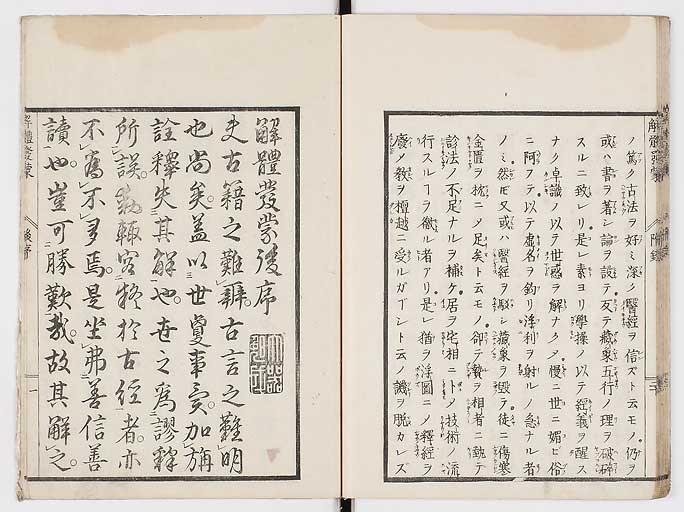 ノ篤ク古法ヲ好ミ深ク醫經ヲ信スト云モノ仍ヲ
或ハ書ヲ著シ論ヲ設テ反テ藏象五行ノ理ヲ破碎
スルニ致レリ是レ素ヨリ學操ノ以テ經義ヲ醒ス
ナク卓識ノ以テ世惑ヲ解ナク慢ニ世ニ媚ビ俗
ニ阿フテ以テ虚名ヲ釣リ浮利ヲ射ルノ急ナル者
ノミ然モ又或ハ醫經ヲ駁シ藏象ヲ毀テ徒ニ傷寒
金匱ヲ挖ニメ足矣ト云モノ卻テ贄ヲ相者ニ執テ
診法ノ不足ナルヲ補ケ居ヲ宅相ニトメ技術ノ流
行スルヿヲ徼ル者アリ是レ猶ヲ浮圖ニノ釋經ヲ
廢メ教ヲ檀越ニ受ルガゴント云ノ譏ヲ脱カレズ
解體發蒙 附錄
解體發蒙後序
夫古籍之難辭古言之難明
也尚矣蓋以世夐事變加旃
詮釋失其解也世之爲謬釋
所誤輒容於古經者亦
不爲不多焉是坐弗善信善
讀也豈可勝歎哉故其解之
解體發蒙 後序 一